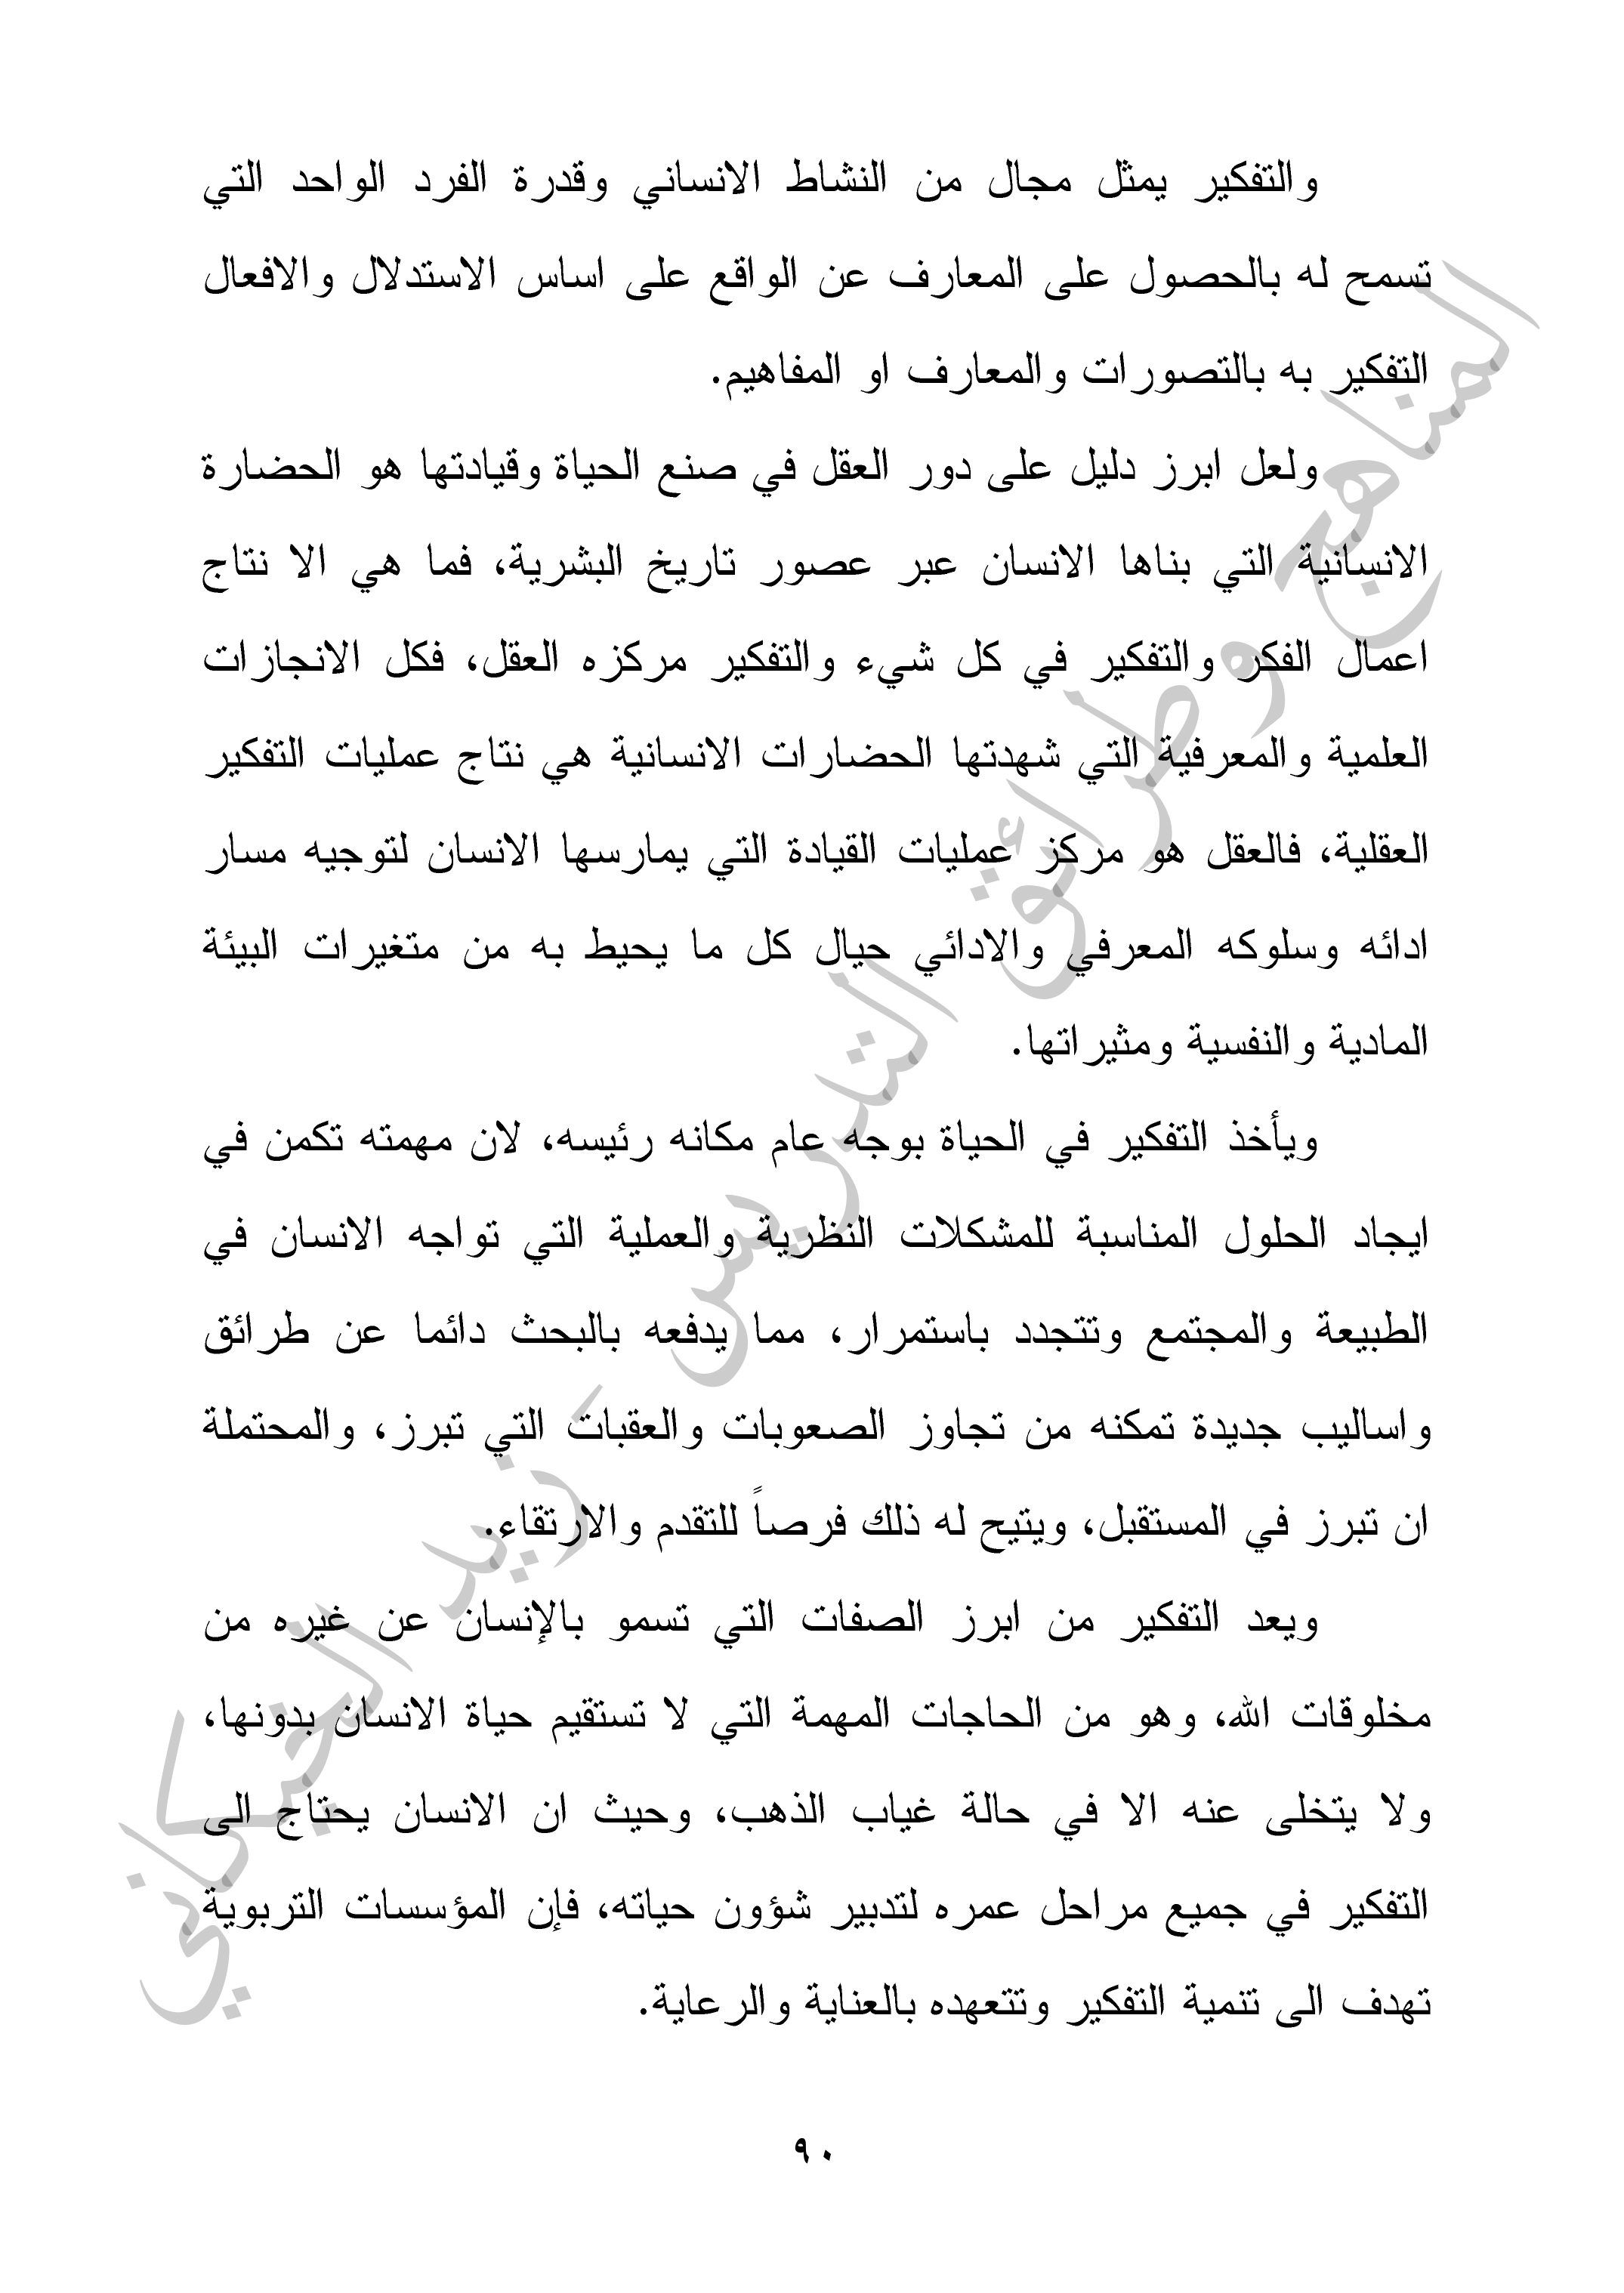 والتفكير يمثل مجال من النشاط الانساني وقدرة الفرد الواحد التي
تسمح له بالحصول على المعارف عن الواقع على اساس الاستدلال والافعال
التفكير به بالتصورات والمعارف او المفاهيم.
ولعل ابرز دليل على دور العقل في صنع الحياة وقيادتها هو الحضارة
الانسانية التي بناها الانسان عبر عصور تاريخ البشرية، فما هي الا نتاج
اعمال الفكر والتفكير في كل شيء والتفكير مركزه العقل، فكل الانجازات
العلمية والمعرفية التي شهدتها الحضارات الانسانية هي نتاج عمليات التفكير
العقلية، فالعقل هو مركز عمليات القيادة التي يمارسها الانسان لتوجيه مسار
ادائه وسلوكه المعرفي والادائي حيال كل ما يحيط به من متغيرات البيئة
المادية والنفسية ومثيراتها.
ويأخذ التفكير في الحياة بوجه عام مكانه رئيسه، لان مهمته تكمن في
ايجاد الحلول المناسبة للمشكلات النظرية والعملية التي تواجه الانسان في
الطبيعة والمجتمع وتتجدد باستمرار، مما يدفعه بالبحث دائما عن طرائق
واساليب جديدة تمكنه من تجاوز الصعوبات والعقبات التي تبرز، والمحتملة
ان تبرز في المستقبل، ويتيح له ذلك فرصاً للتقدم والارتقاء.
ويعد التفكير من ابرز الصفات التي تسمو بالإنسان عن غيره من
مخلوقات الله، وهو من الحاجات المهمة التي لا تستقيم حياة الانسان بدونها،
ولا يتخلى عنه الا في حالة غياب الذهب، وحيث ان الانسان يحتاج الى
التفكير في جميع مراحل عمره لتدبير شؤون حياته، فإن المؤسسات التربوية
تهدف الى تنمية التفكير وتتعهده بالعناية والرعاية.
٩٠
المناهج وطرائق التدريس - زيد الخيكاني